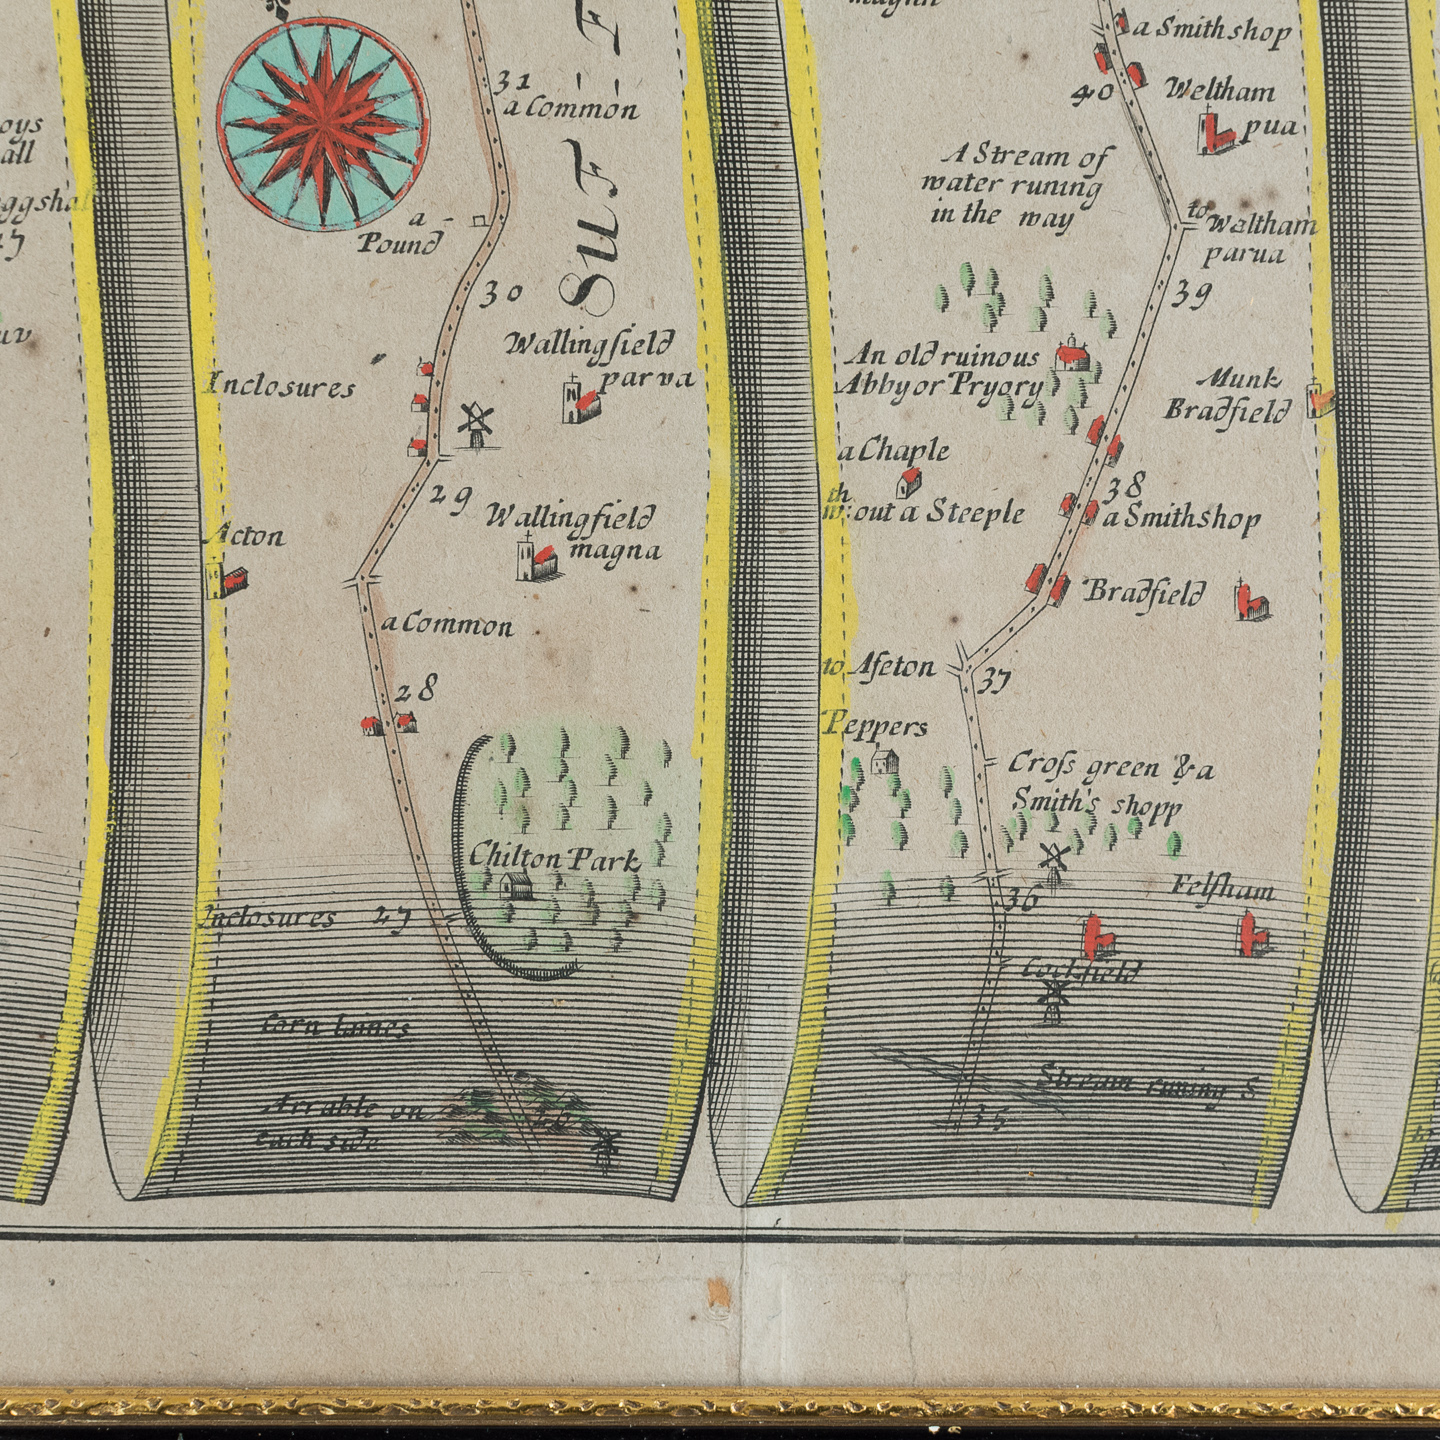 oys
all
ggshal
31
a Common
SUF
a
Pound
30
Wallingfield
parva
Inclosures
29
Wallingfield
magna
Acton
a Common
28
Chilton Park
Inclosures 27
Corn Laines
Arrable on
each side
26
a Smith shop
40
Weltham
pua
A Stream of
water runing
in the way
to Waltham
parua
39
An old ruinous
Abby or Pryory
Munk
Bradfield
a Chaple
wth:out a Steeple
38
a Smith shop
Bradfield
to Aſeton
37
Peppers
Croſs green & a
Smith's shopp
36
Felſham
Cockfield
Stream runing S
35